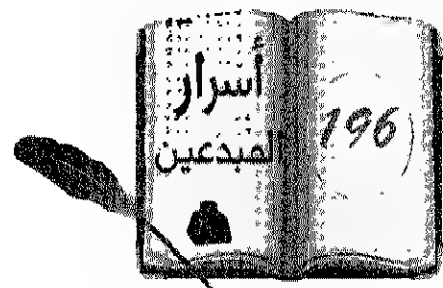 أسرار
المبدعين
(196)